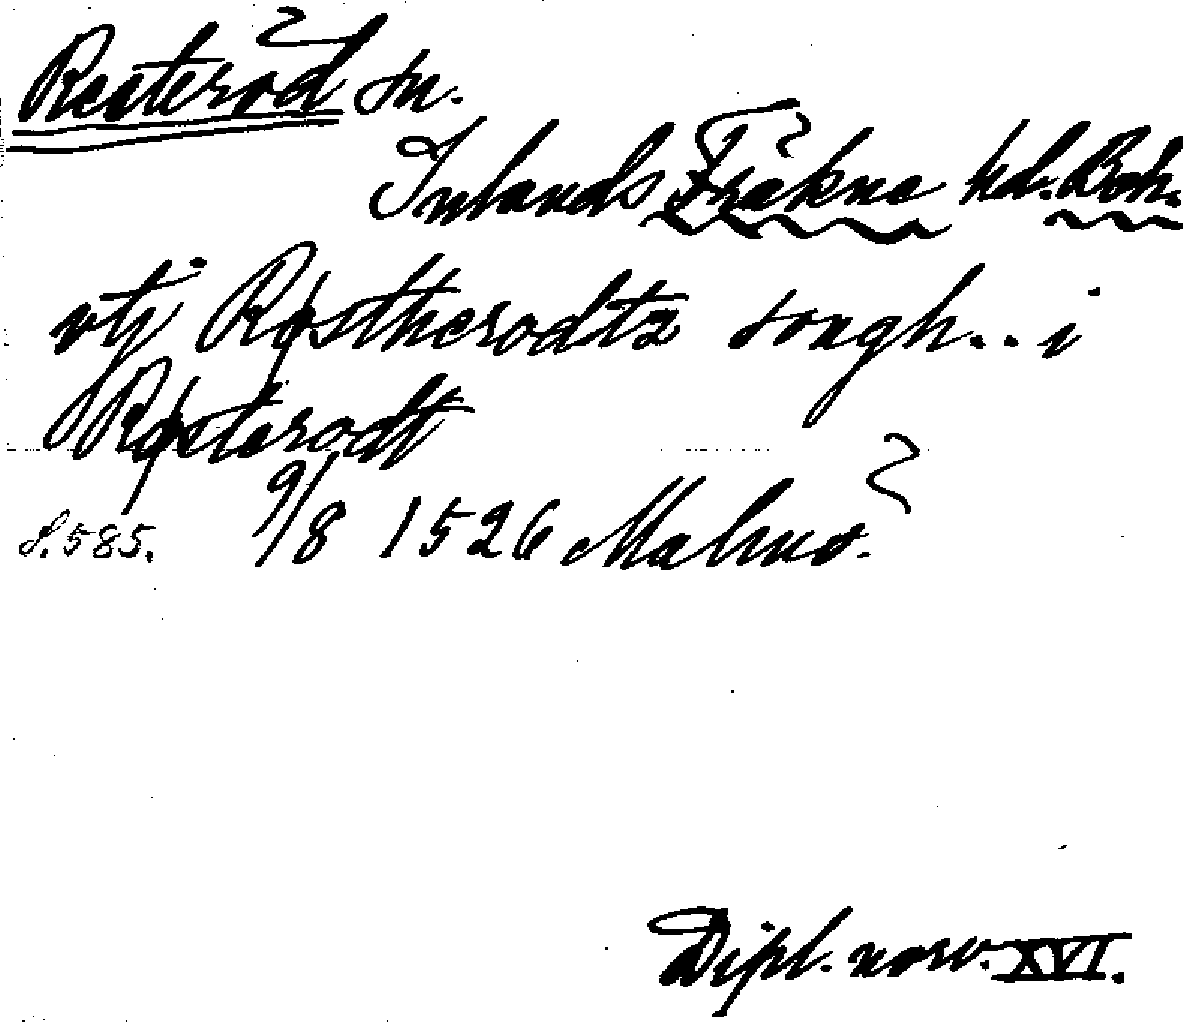 Resteröd sn.
Inlands Fräkne hd. Boh.
vtj Røstherodtz songh... i
Røsterodt
s. 585. 9/8 1526 Malmö.
Dipl. norv. XVI.